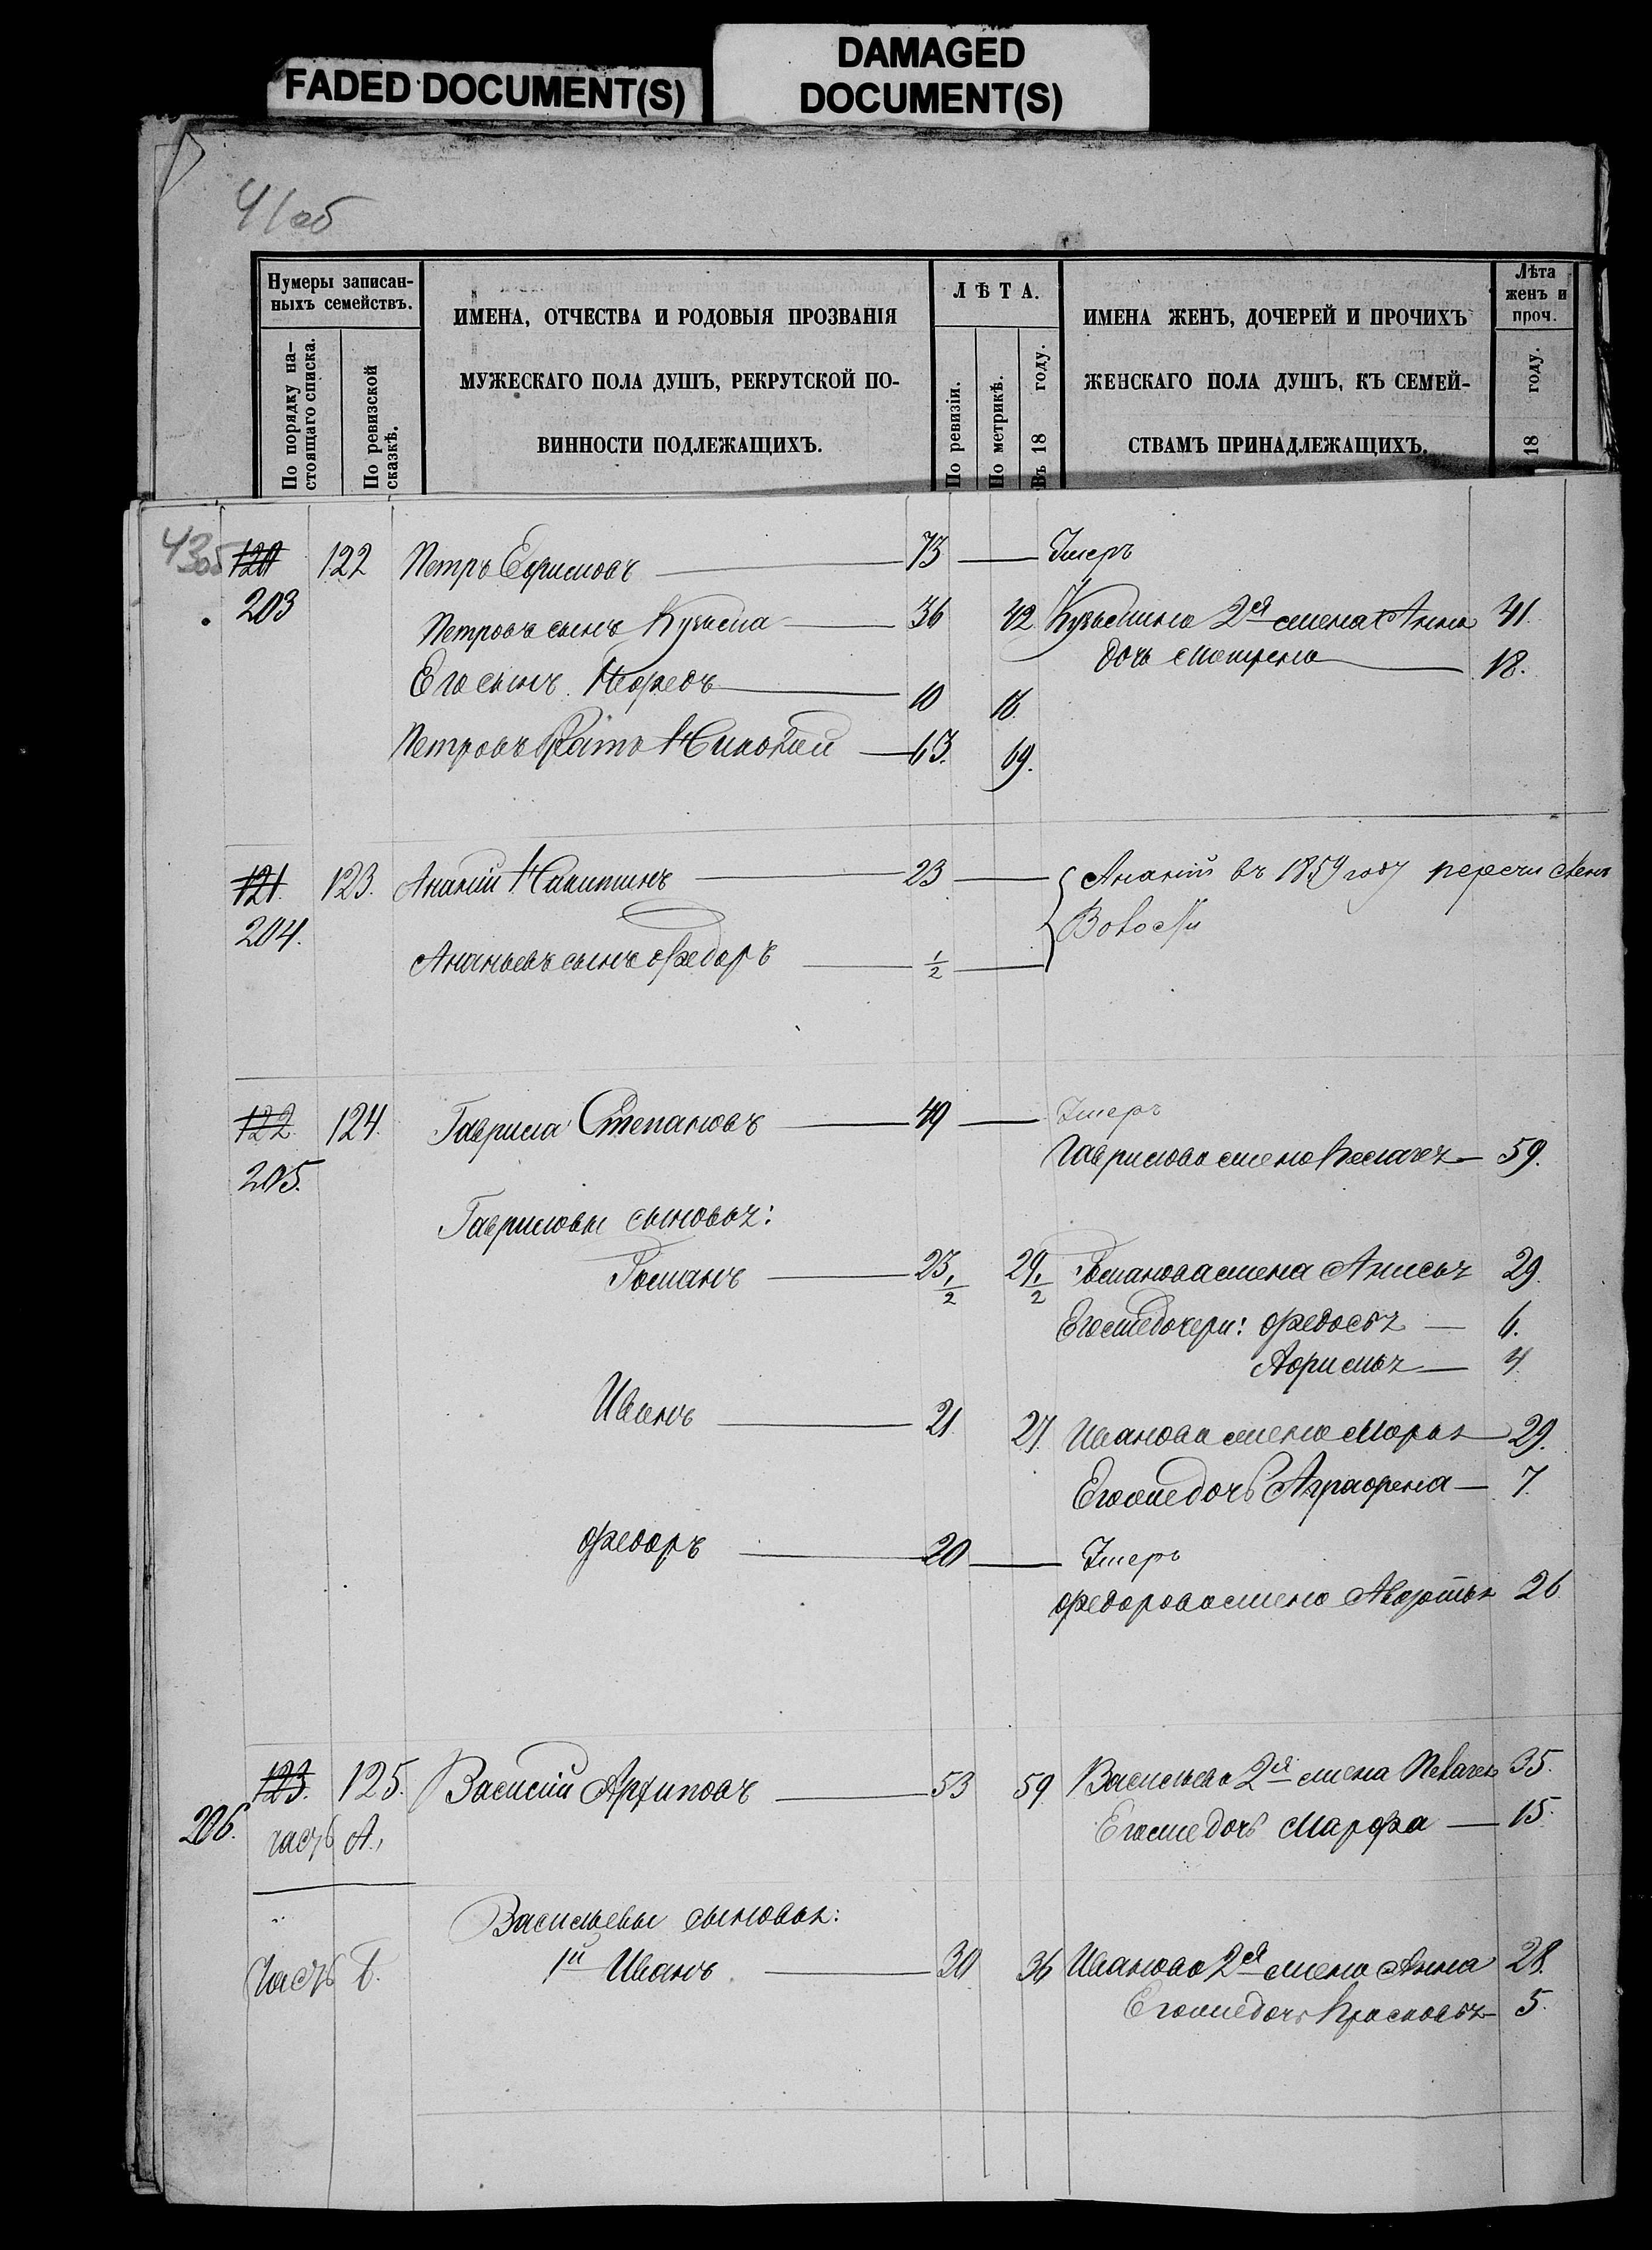 FADED DOCUMENT(S)
DAMAGED
DOCUMENT(S)
41об
Нумеры записан-
ныхъ семействъ.
По порядку на-
стоящаго списка.
По ревизской
сказкѣ.
ИМЕНА, ОТЧЕСТВА И РОДОВЫЯ ПРОЗВАНІЯ
МУЖЕСКАГО ПОЛА ДУШЪ, РЕКРУТСКОЙ ПО-
ВИННОСТИ ПОДЛЕЖАЩИХЪ.
ЛѢТА.
По ревизіи.
По метрикѣ.
Въ 18 году.
ИМЕНА ЖЕНЪ, ДОЧЕРЕЙ И ПРОЧИХЪ
ЖЕНСКАГО ПОЛА ДУШЪ, КЪ СЕМЕЙ-
СТВАМЪ ПРИНАДЛЕЖАЩИХЪ.
Лѣта
женъ и
проч.
18 году.
43об
120 122 Петръ Ефимовъ 73 Умеръ
203
Петровъ сынъ Кузьма 36 42 Кузьмина 2я жена Анна 41.
дочь Матрена 18.
Его сынъ 10 16
Петровъ братъ Николай 63. 69.
121. 123. Ананій Никитинъ 23 Ананій въ 1859 году перечисленъ
204.
Ананьевъ сынъ Федоръ 1/2
122. 124. Гаврила Степановъ 49 Умеръ
205. Гаврилова жена 59.
Гавриловы сыновья:
Романъ 23 1/2 29 1/2 Романова жена Анисья 29.
Его же дочери: Федосья 6.
Афимья 4.
Иванъ 21 27. Иванова жена Марья 29.
Его же дочь Аграфена 7.
Федоръ 20 Умеръ
Федорова жена Авдотья 26
123. 125. Василій Архиповъ 53 59 Васильева 2я жена Пелагея 35.
206. часть А., Его же дочь Марфа 15.
Васильевы сыновья:
Часть Б. 1й Иванъ 30 36 Иванова 2я жена Анна 28.
Его же дочь Прасковья 5.